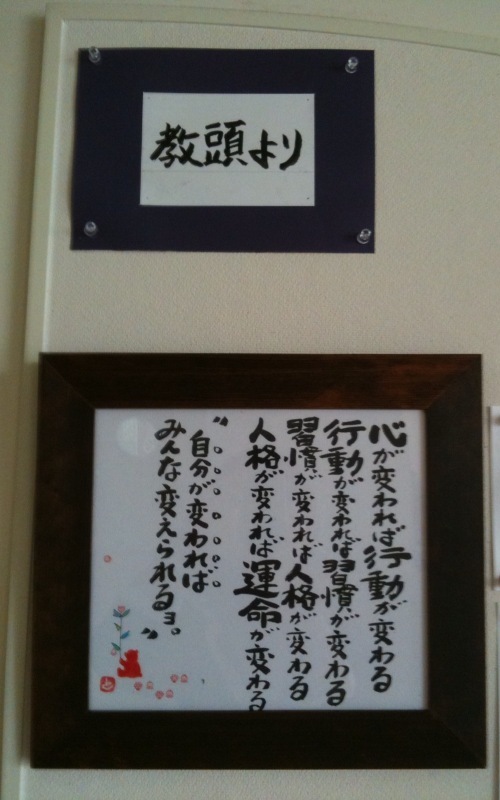 教頭より
心が変われば行動が変わる
行動が変われば習慣が変わる
習慣が変われば人格が変わる
人格が変われば運命が変わる
〝自分が変われば
みんな変えられるョ。〟